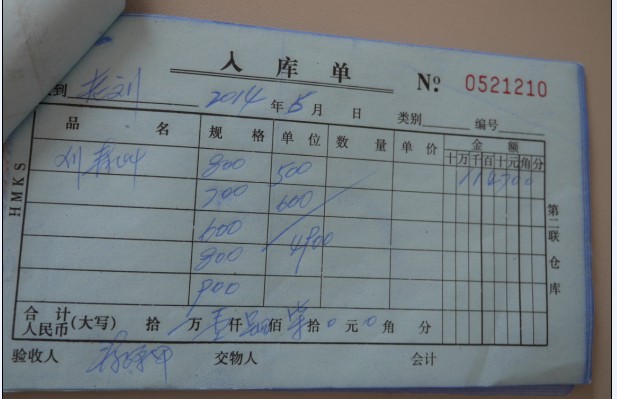 入库单 No. 0521210
到 老刘 2014年5月 日 类别 编号
品名 规格 单位 数量 单价 金额
十万千百十元角分
800 500
700 600
600
800 4900
900
合计
人民币(大写) 拾 万壹仟 佰柒拾0元0角 分
验收人 交物人 会计
HMKS
第二联 仓库